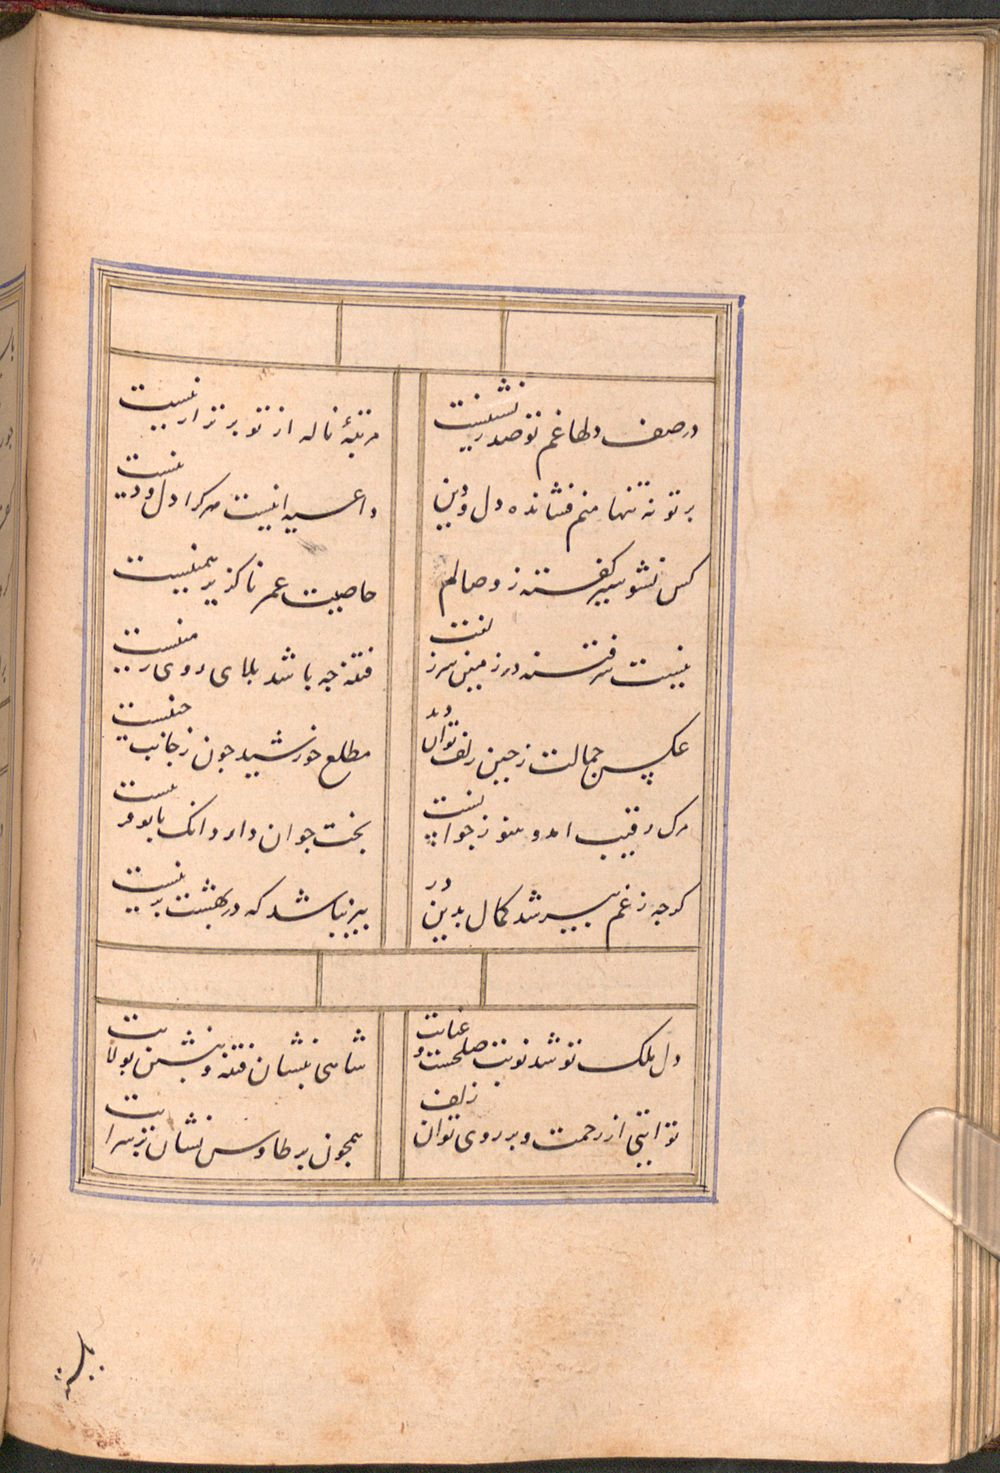 در صف دلها غم تو صدر نشینست
مرتبهٔ ناله از تو برتر ازینست
بر تو نه تنها منم فشانده دل و دین
داعیه اینست هر کرا دل و دینست
کس نشود سیر گفته ز وصالم
خاصیت عمر ناگزیر همینست
نیست سر فتنه در زمین سر زلفت
فتنه چه باشد بلای روی زمینست
عکس جمالت ز چین زلف توان دید
مطلع خورشید چون ز جانب چینست
مرک رقیب
بخت جوان دارد آنک با تو قرینست
کرچه ز غم پیر شد کمال بدین در
پیر نباشد که در بهشت برینست
دل ملک تو شد نوبت صلحست و عنایت
شاهی بنشان فتنه و بنشین بولایت
تو آیتی از رحمت و بر روی تو آن زلف
همچون پر طاوس نشان بر سر آیت